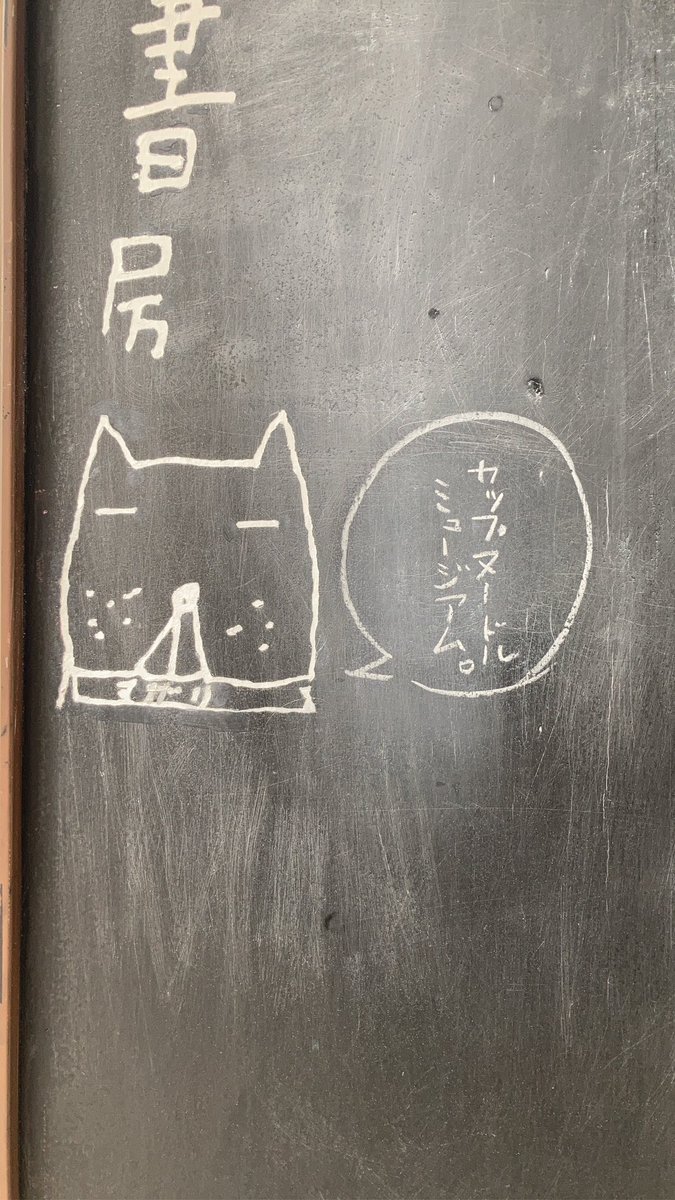 書房
カップヌードル
ミュージアム。